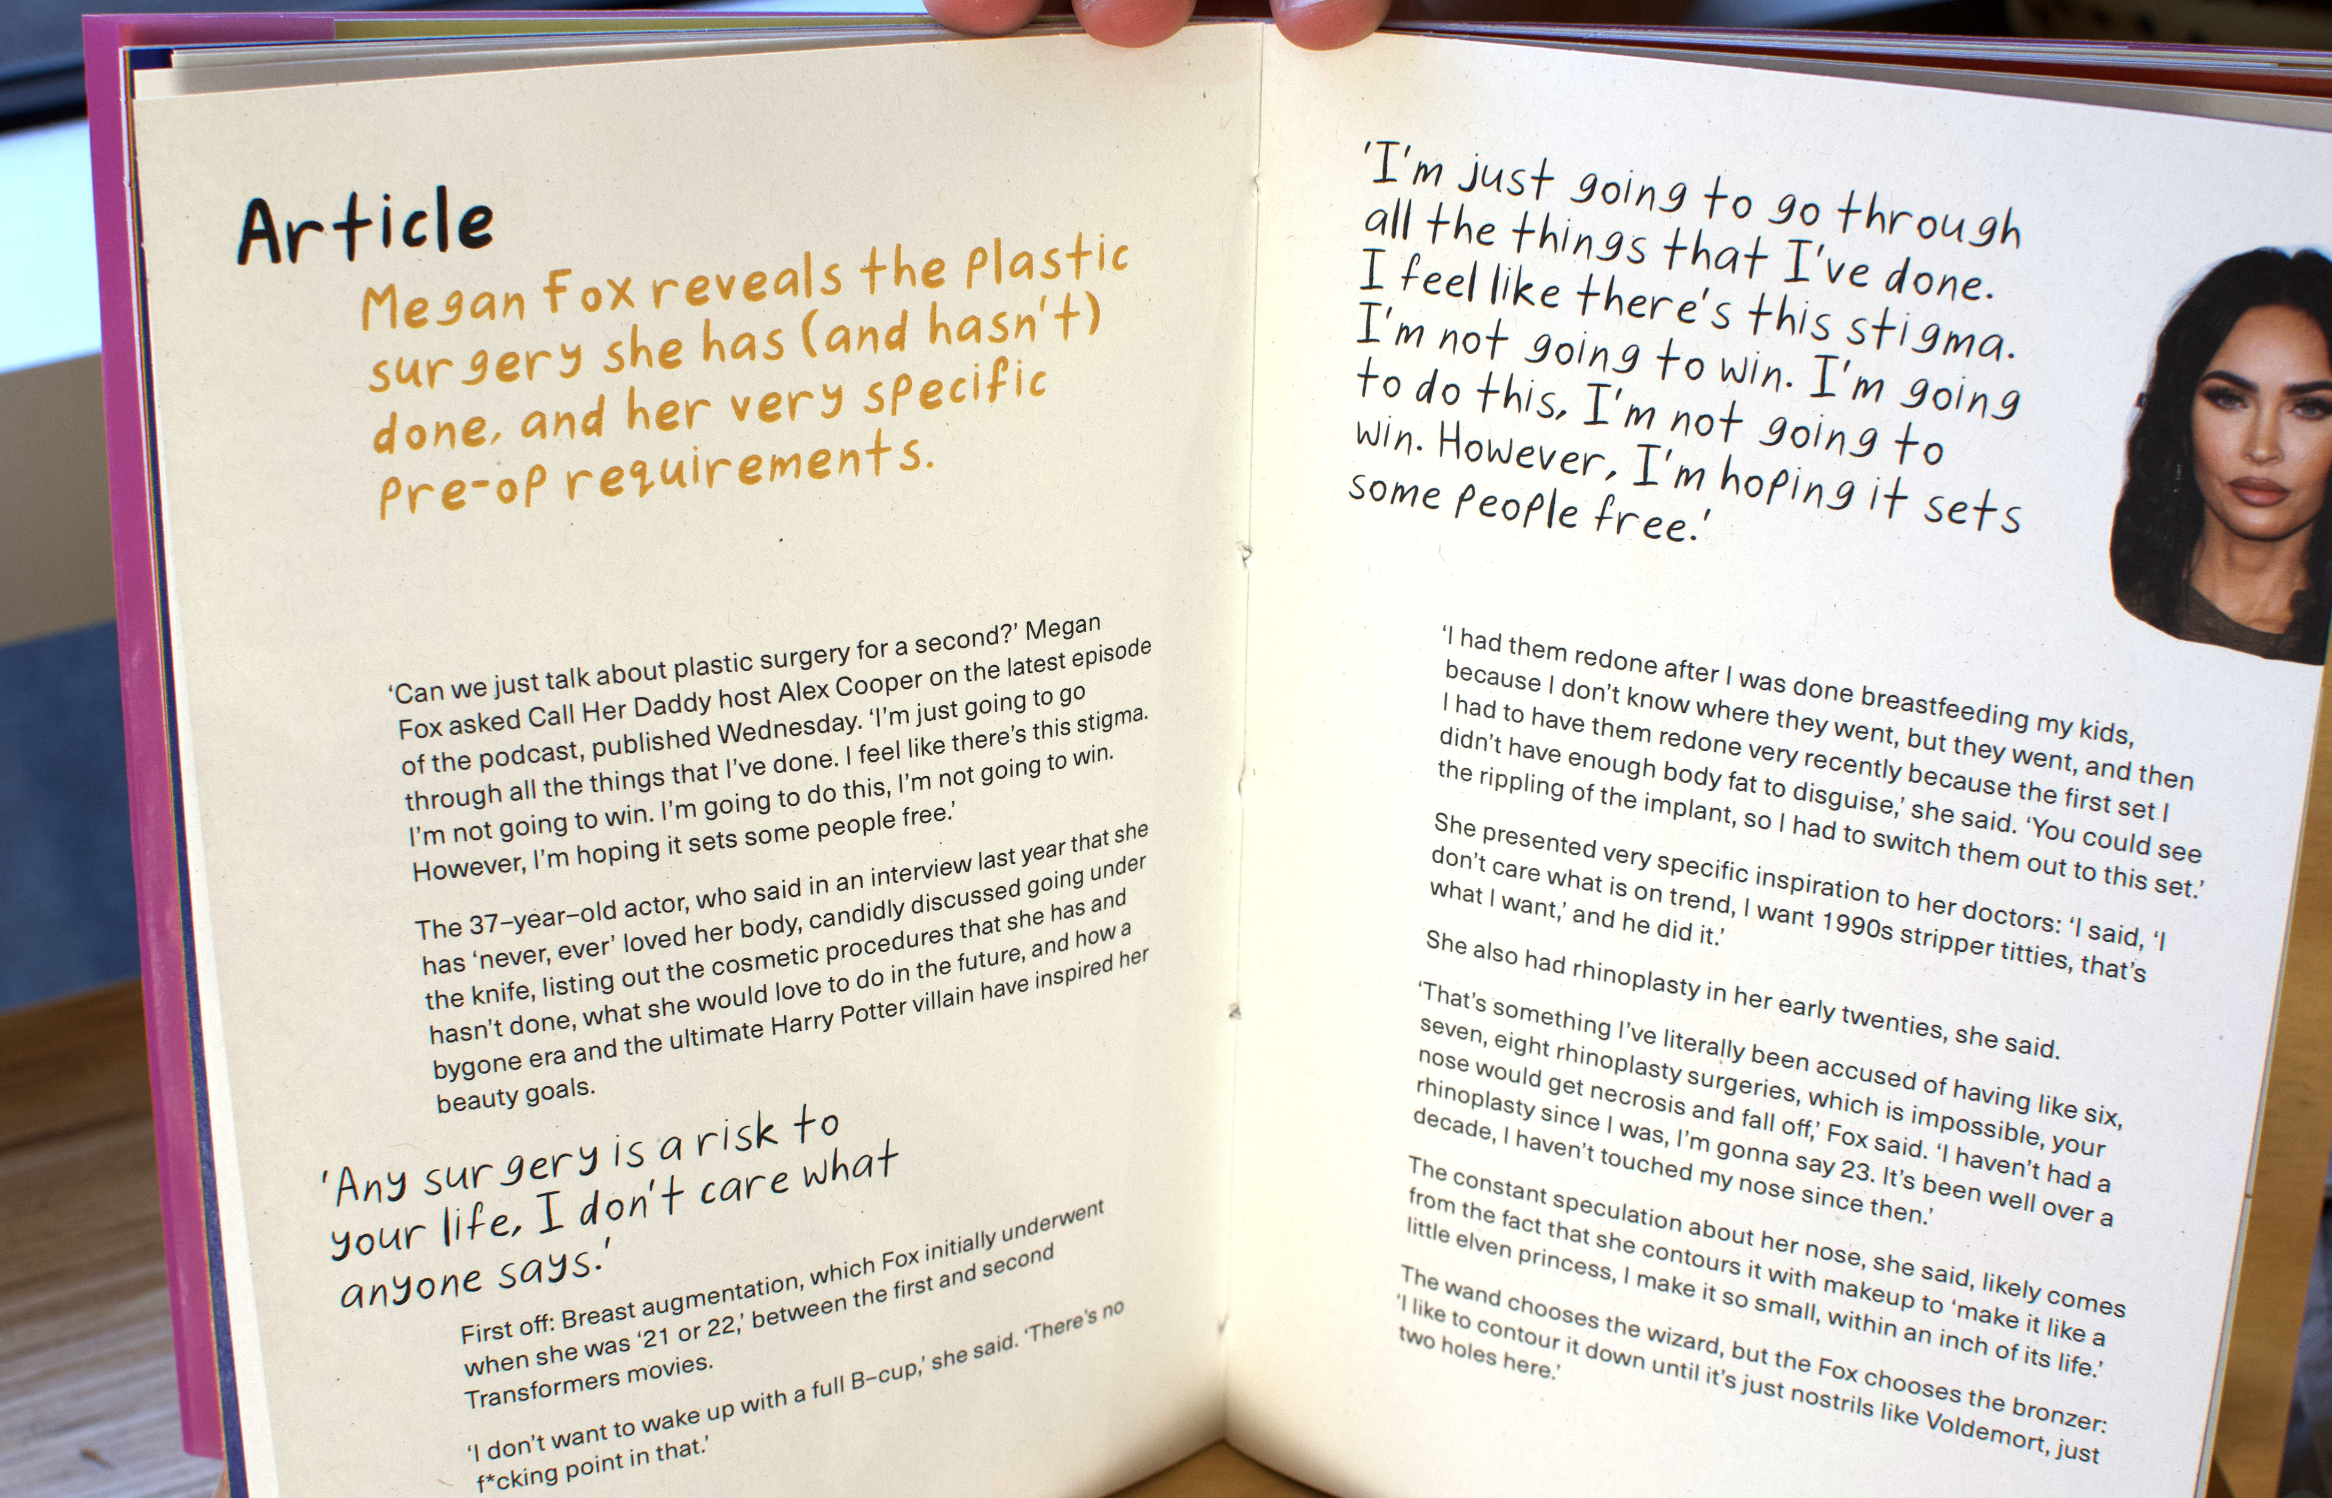 Article
Megan Fox reveals the plastic
surgery she has (and hasn't)
done, and her very specific
pre-op requirements.
'Can we just talk about plastic surgery for a second?' Megan
Fox asked Call Her Daddy host Alex Cooper on the latest episode
of the podcast, published Wednesday. 'I'm just going to go
through all the things that I've done. I feel like there's this stigma.
I'm not going to win. I'm going to do this, I'm not going to win.
However, I'm hoping it sets some people free.'
The 37-year-old actor, who said in an interview last year that she
has 'never, ever' loved her body, candidly discussed going under
the knife, listing out the cosmetic procedures that she has and
hasn't done, what she would love to do in the future, and how a
bygone era and the ultimate Harry Potter villain have inspired her
beauty goals.
'Any surgery is a risk to
your life, I don't care what
anyone says.'
First off: Breast augmentation, which Fox initially underwent
when she was '21 or 22,' between the first and second
Transformers movies.
'I don't want to wake up with a full B-cup,' she said. 'There's no
f*cking point in that.'
'I'm just going to go through
all the things that I've done.
I feel like there's this stigma.
I'm not going to win. I'm going
to do this, I'm not going to
win. However, I'm hoping it sets
some people free.'
'I had them redone after I was done breastfeeding my kids,
because I don't know where they went, but they went, and then
I had to have them redone very recently because the first set I
didn't have enough body fat to disguise,' she said. 'You could see
the rippling of the implant, so I had to switch them out to this set.'
She presented very specific inspiration to her doctors: 'I said, 'I
don't care what is on trend, I want 1990s stripper titties, that's
what I want,' and he did it.'
She also had rhinoplasty in her early twenties, she said.
'That's something I've literally been accused of having like six,
seven, eight rhinoplasty surgeries, which is impossible, your
nose would get necrosis and fall off,' Fox said. 'I haven't had a
rhinoplasty since I was, I'm gonna say 23. It's been well over a
decade, I haven't touched my nose since then.'
The constant speculation about her nose, she said, likely comes
from the fact that she contours it with makeup to 'make it like a
little elven princess, I make it so small, within an inch of its life.'
The wand chooses the wizard, but the Fox chooses the bronzer:
'I like to contour it down until it's just nostrils like Voldemort, just
two holes here.'